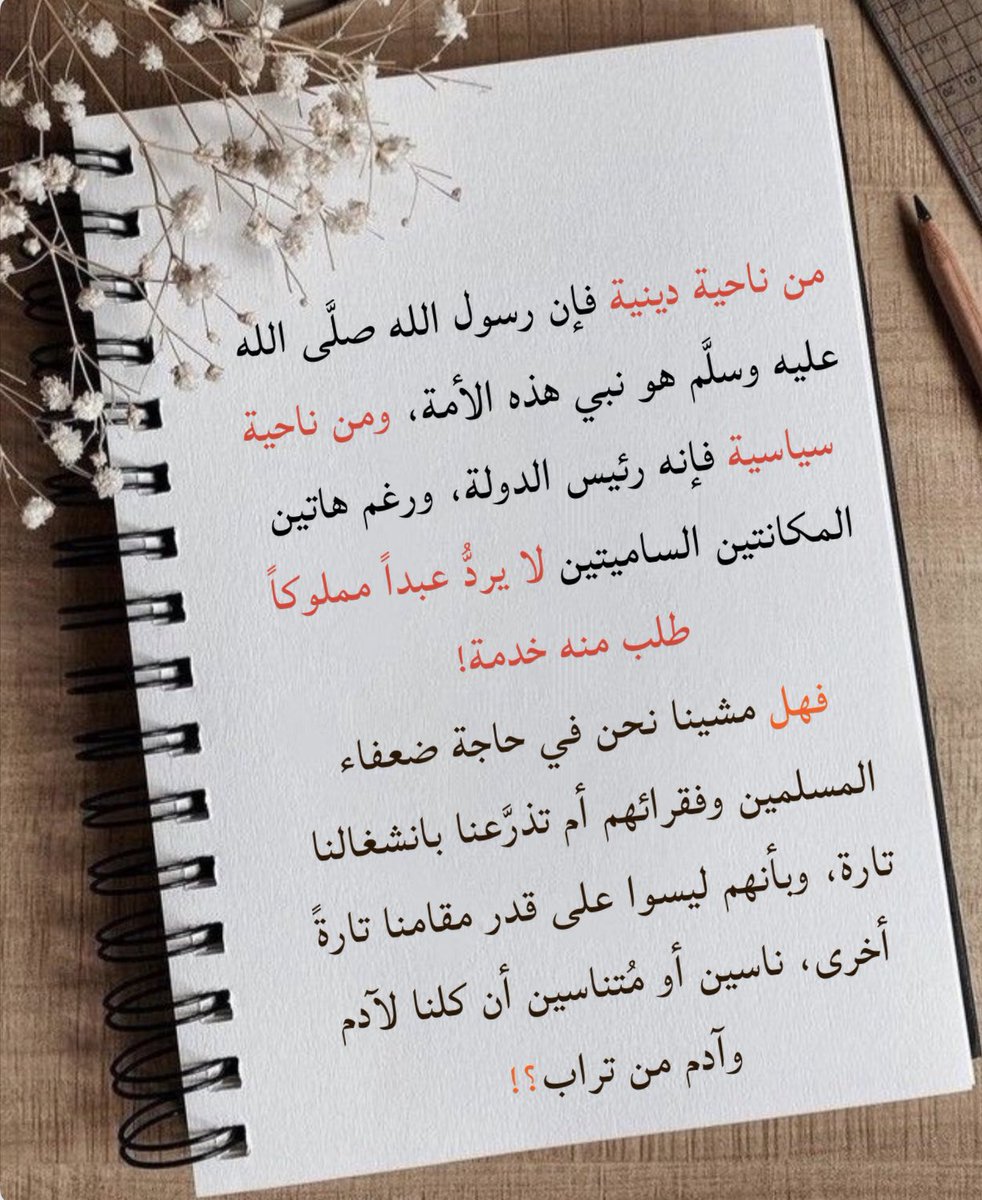 من ناحية دينية فإن رسول الله صلَّى الله
عليه وسلَّم هو نبي هذه الأمة، ومن ناحية
سياسية فإنه رئيس الدولة، ورغم هاتين
المكانتين الساميتين لا يردُّ عبداً مملوكاً
طلب منه خدمة!
فهل مشينا نحن في حاجة ضعفاء
المسلمين وفقرائهم أم تذرَّعنا بانشغالنا
تارة، وبأنهم ليسوا على قدر مقامنا تارةً
أخرى، ناسين أو مُتناسين أن كلنا لآدم
وآدم من تراب؟!